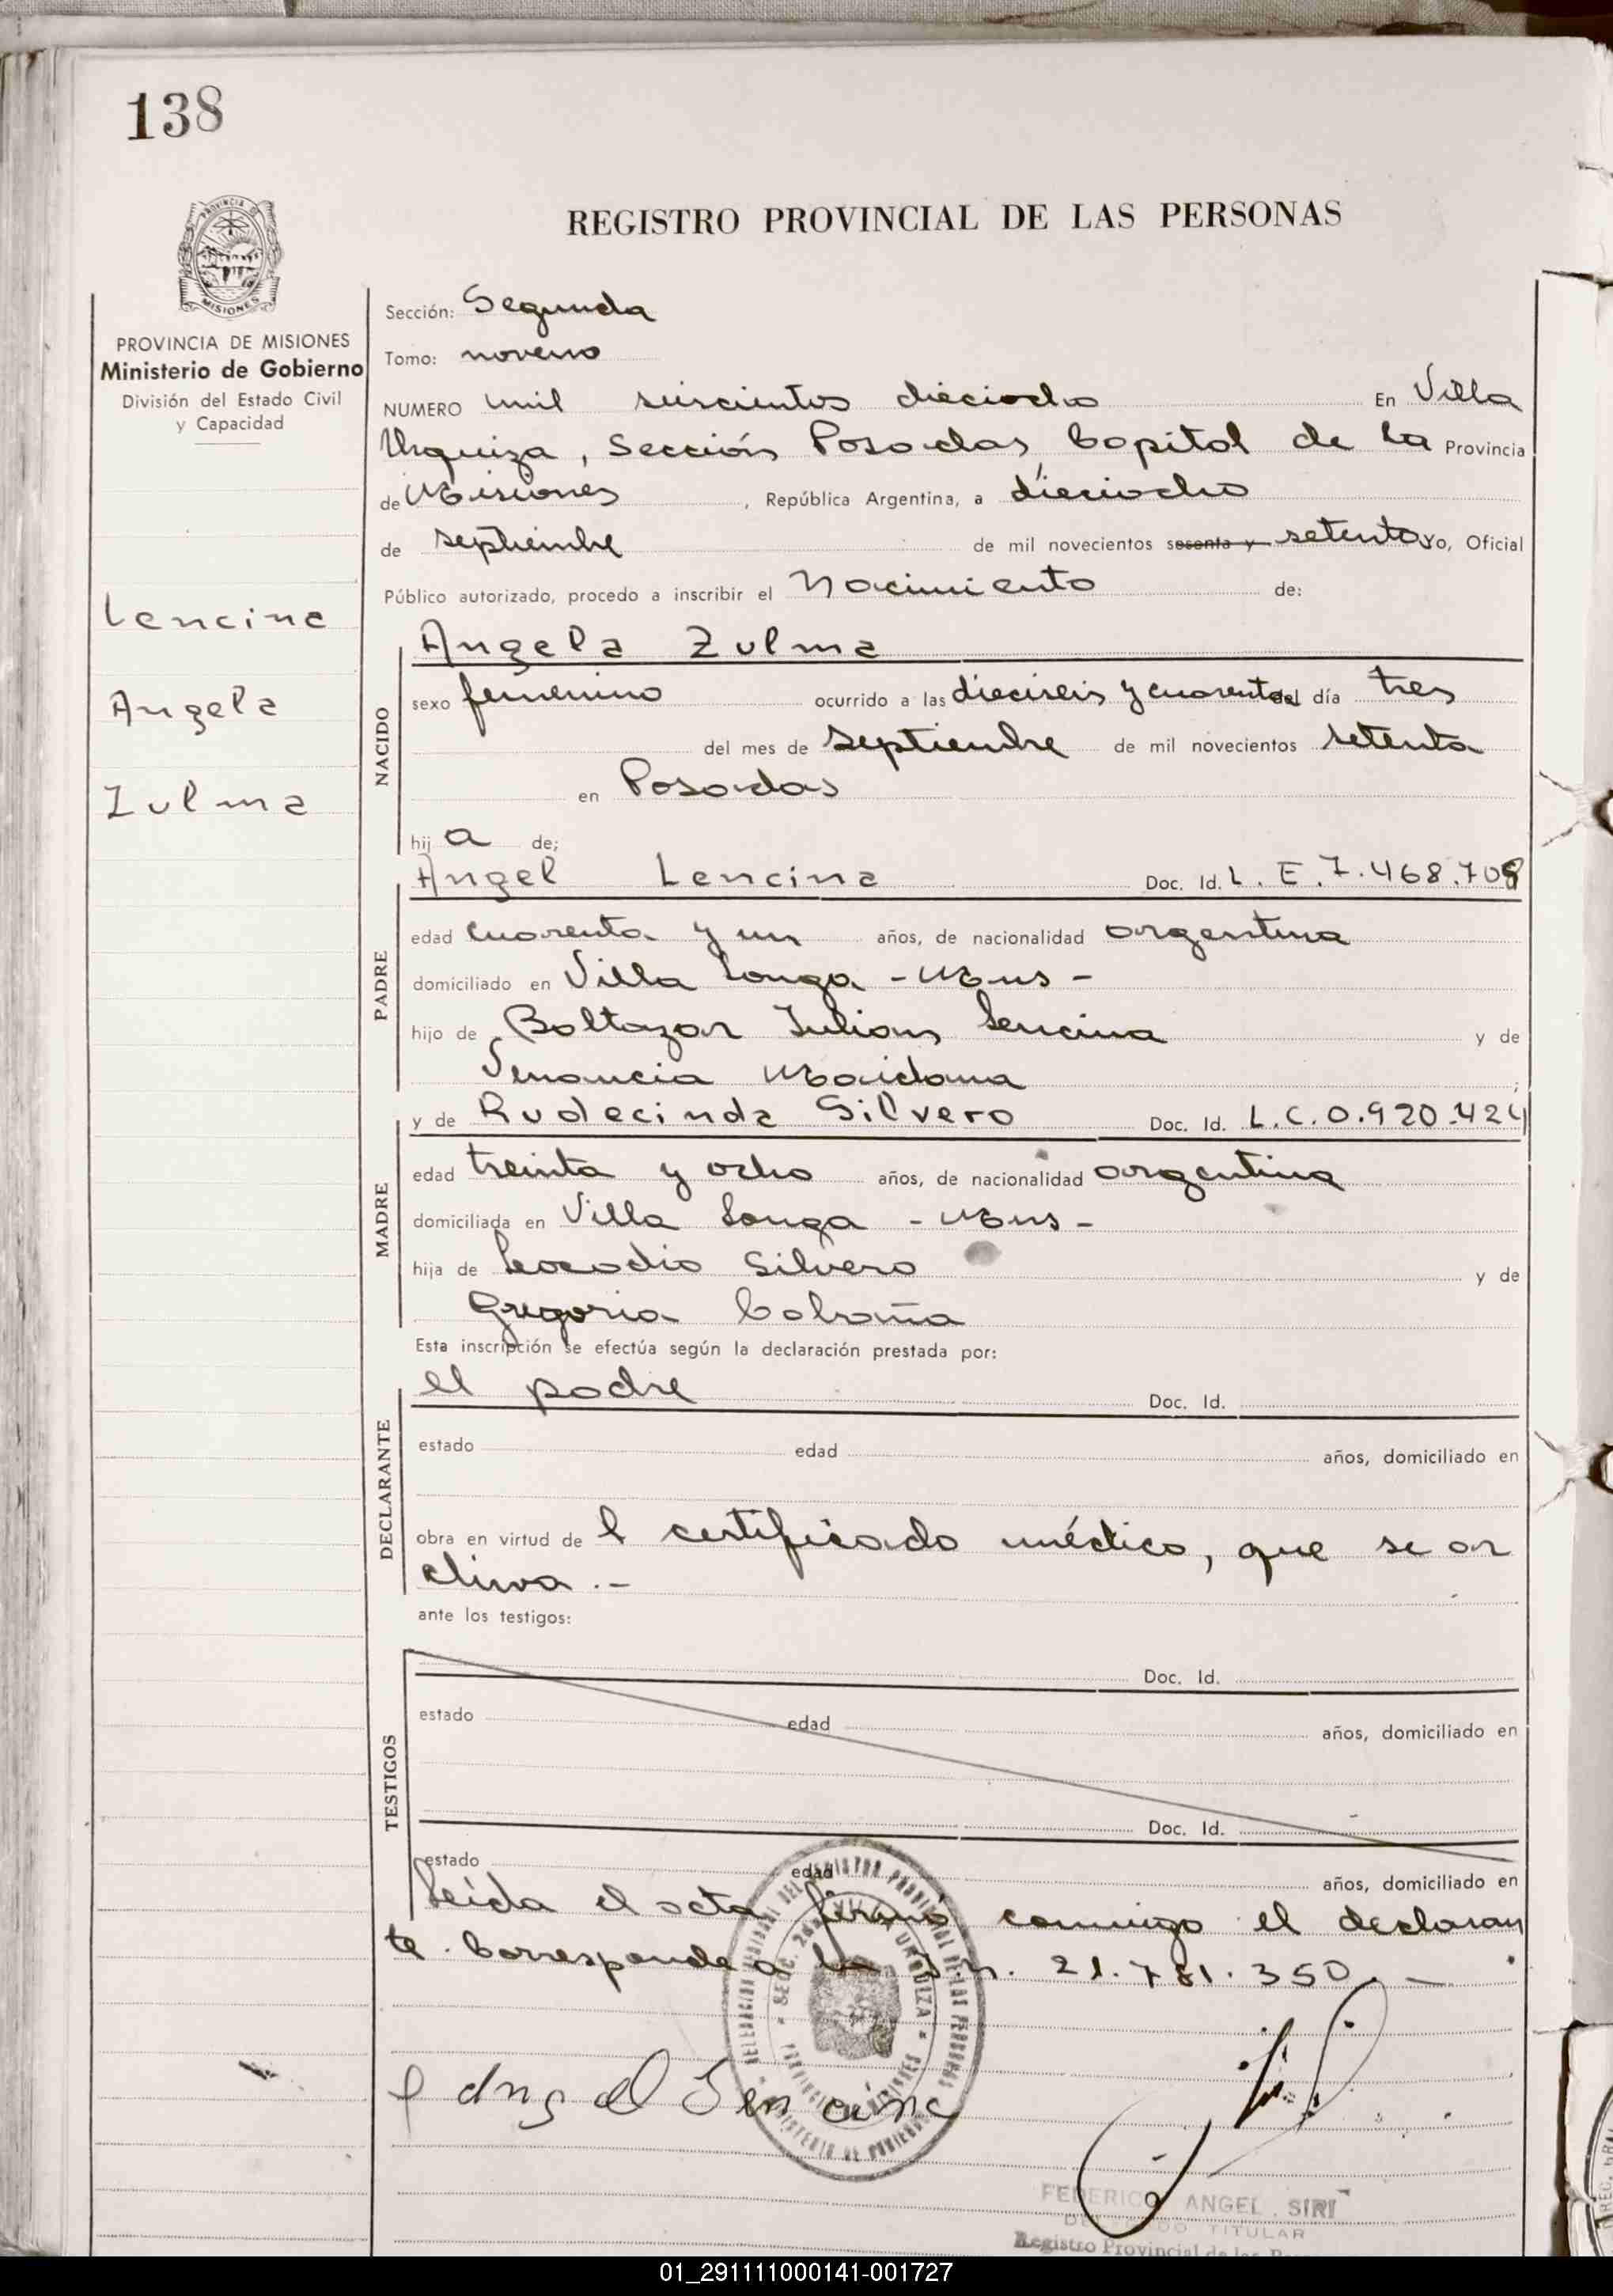 138
PROVINCIA DE
MISIONES
REGISTRO PROVINCIAL DE LAS PERSONAS
PROVINCIA DE MISIONES
Ministerio de Gobierno
División del Estado Civil
y Capacidad
Lencina
Angela
Zulma
Sección: Segunda
Tomo: noveno
NUMERO mil seiscientos dieciocho En Villa
Urquiza, Sección Posadas Capital de la Provincia
de Misiones, República Argentina, a dieciocho
de septiembre de mil novecientos sesenta y setenta yo, Oficial
Público autorizado, procedo a inscribir el Nacimiento de:
Angela Zulma
NACIDO
sexo femenino ocurrido a las dieciseis y cuarenta del día tres
del mes de Septiembre de mil novecientos setenta
en Posadas
hij a de;
PADRE
Angel Lencina Doc. Id. L. E. 7.468.708
edad cuarenta y un años, de nacionalidad argentina
domiciliado en Villa Longa - Mnes -
hijo de Baltazar Julian Lencina y de
Venancia Maidana ;
MADRE
y de Rudecinda Silvero Doc. Id. L.C.0.920.424
edad treinta y ocho años, de nacionalidad argentina
domiciliada en Villa Longa - Mnes -
hija de Leocadio Silvero y de
Gregoria
Esta inscripción se efectúa según la declaración prestada por:
DECLARANTE
el padre Doc. Id.
estado edad años, domiciliado en
obra en virtud de l certificado médico, que se ar
chiva .-
ante los testigos:
TESTIGOS
Doc. Id.
estado edad años, domiciliado en
Doc. Id.
estado edad años, domiciliado en
Leída el acta firmó conmigo el declaran
te. Corresponde a 21.781.350. -
Angel Lencina
FEDERICO ANGEL SIRI
DELEGADO TITULAR
Registro Provincial de las
01_291111000141-001727